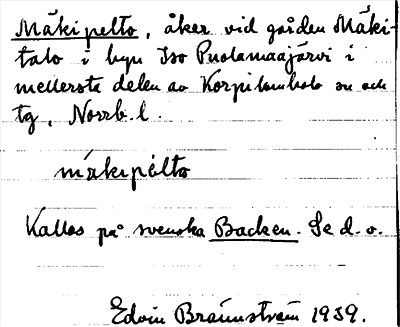 Mäkipelto, åker vid gården Mäki-
talo i byn Iso Puolamaajärvi i
mellersta delen av Korpilombolo sn och
tg, Norrb. l.
mäkipèlto
Kallas på svenska Backen. Se d. o.
Edvin Brännström 1939.